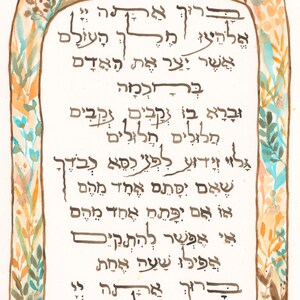 בָּרוּךְ אַתָּה יְיָ
אֱלֹהֵינוּ מֶלֶךְ הָעוֹלָם
אֲשֶׁר יָצַר אֶת הָאָדָם
בְּחָכְמָה
וּבָרָא בוֹ נְקָבִים נְקָבִים
חֲלוּלִים חֲלוּלִים
גָּלוּי וְיָדוּעַ לִפְנֵי כִסֵּא כְבֹדֶךָ
שֶׁאִם יִסָּתֵם אֶחָד מֵהֶם
אוֹ אִם יִפָּתֵחַ אֶחָד מֵהֶם
אִי אֶפְשַׁר לְהִתְקַיֵּם
אֲפִילוּ שָׁעָה אֶחָת
בָּרוּךְ אַתָּה יְיָ